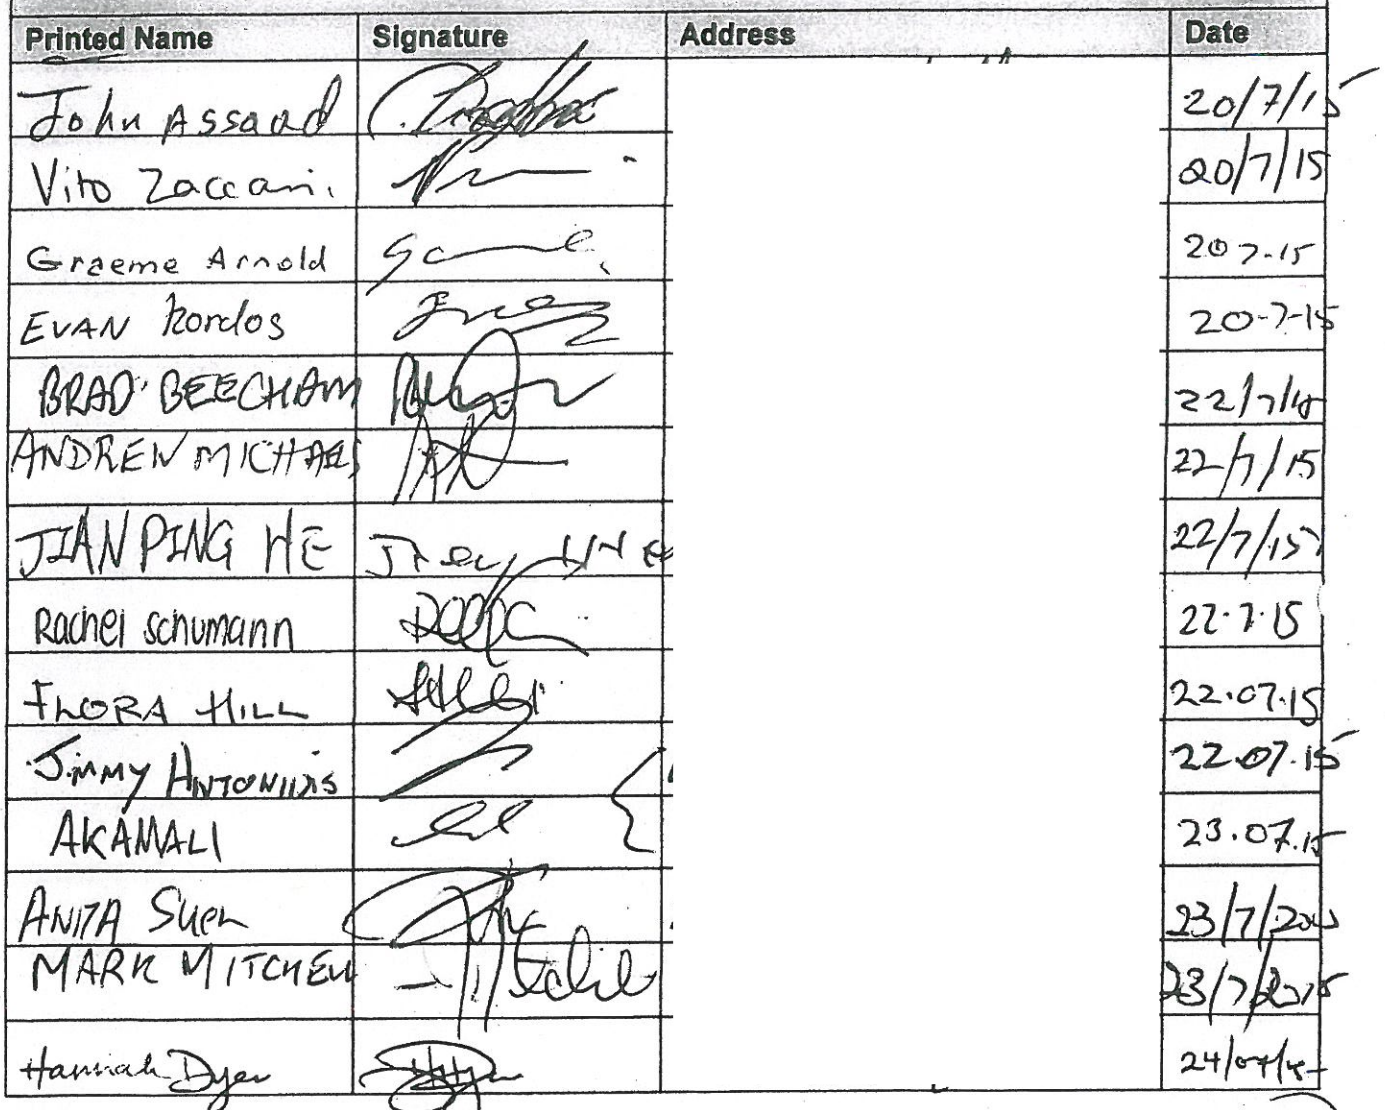 Printed Name Signature Address Date
John Assaad 20/7/15
Vito Zaccari. 20/7/15
Graeme Arnold 20 7.15
EVAN Kordos 20-7-15
BRAD BEECHAM 22/7/15
ANDREW MICHAELS 22/7/15
JIAN PING HE 22/7/15
Rachel Schumann 22.7.15
FLORA HILL 22.07.15
Jimmy 22.07.15
AKAMALI 23.07.15
ANITA 23/7/
MARK MITCHELL 23/7/2015
Hannah Dyer 24/07/15